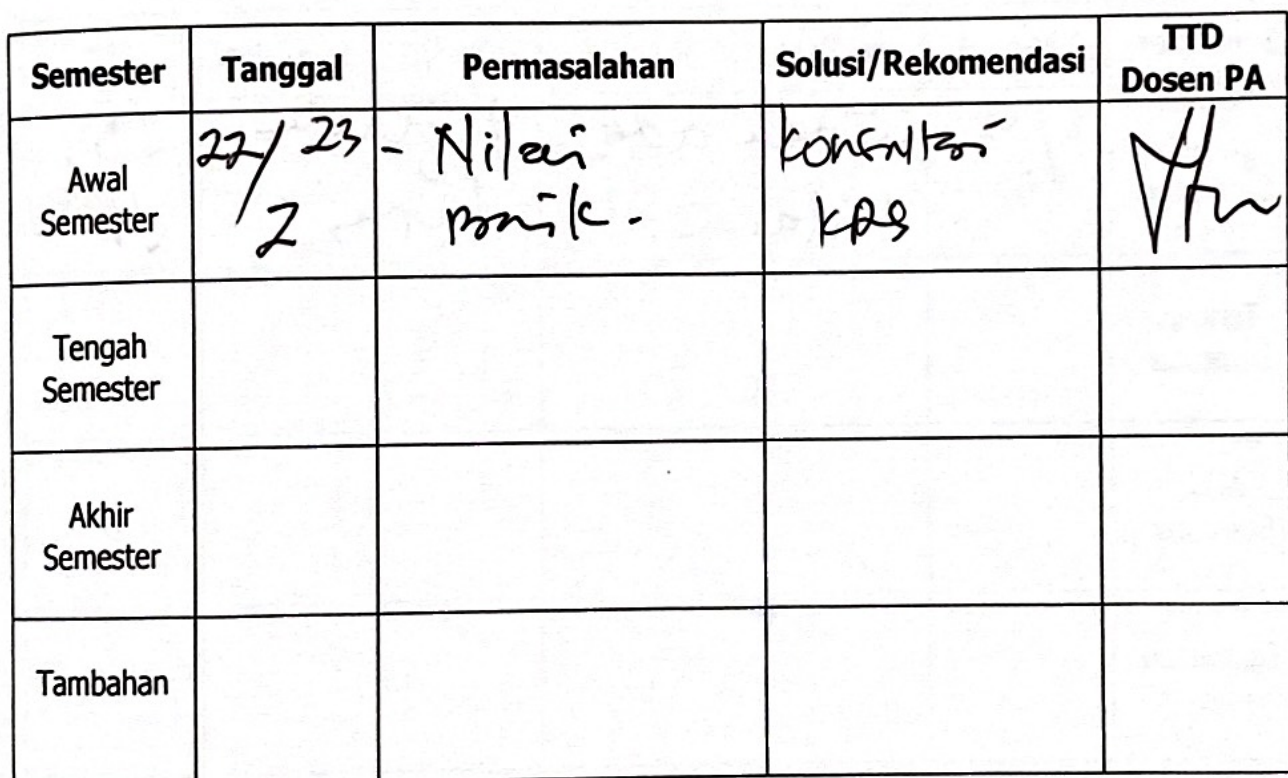 Semester Tanggal Permasalahan Solusi/Rekomendasi TTD Dosen PA
Awal Semester 22/2 23 - Nilai baik. Konsultasi KRS
Tengah Semester
Akhir Semester
Tambahan